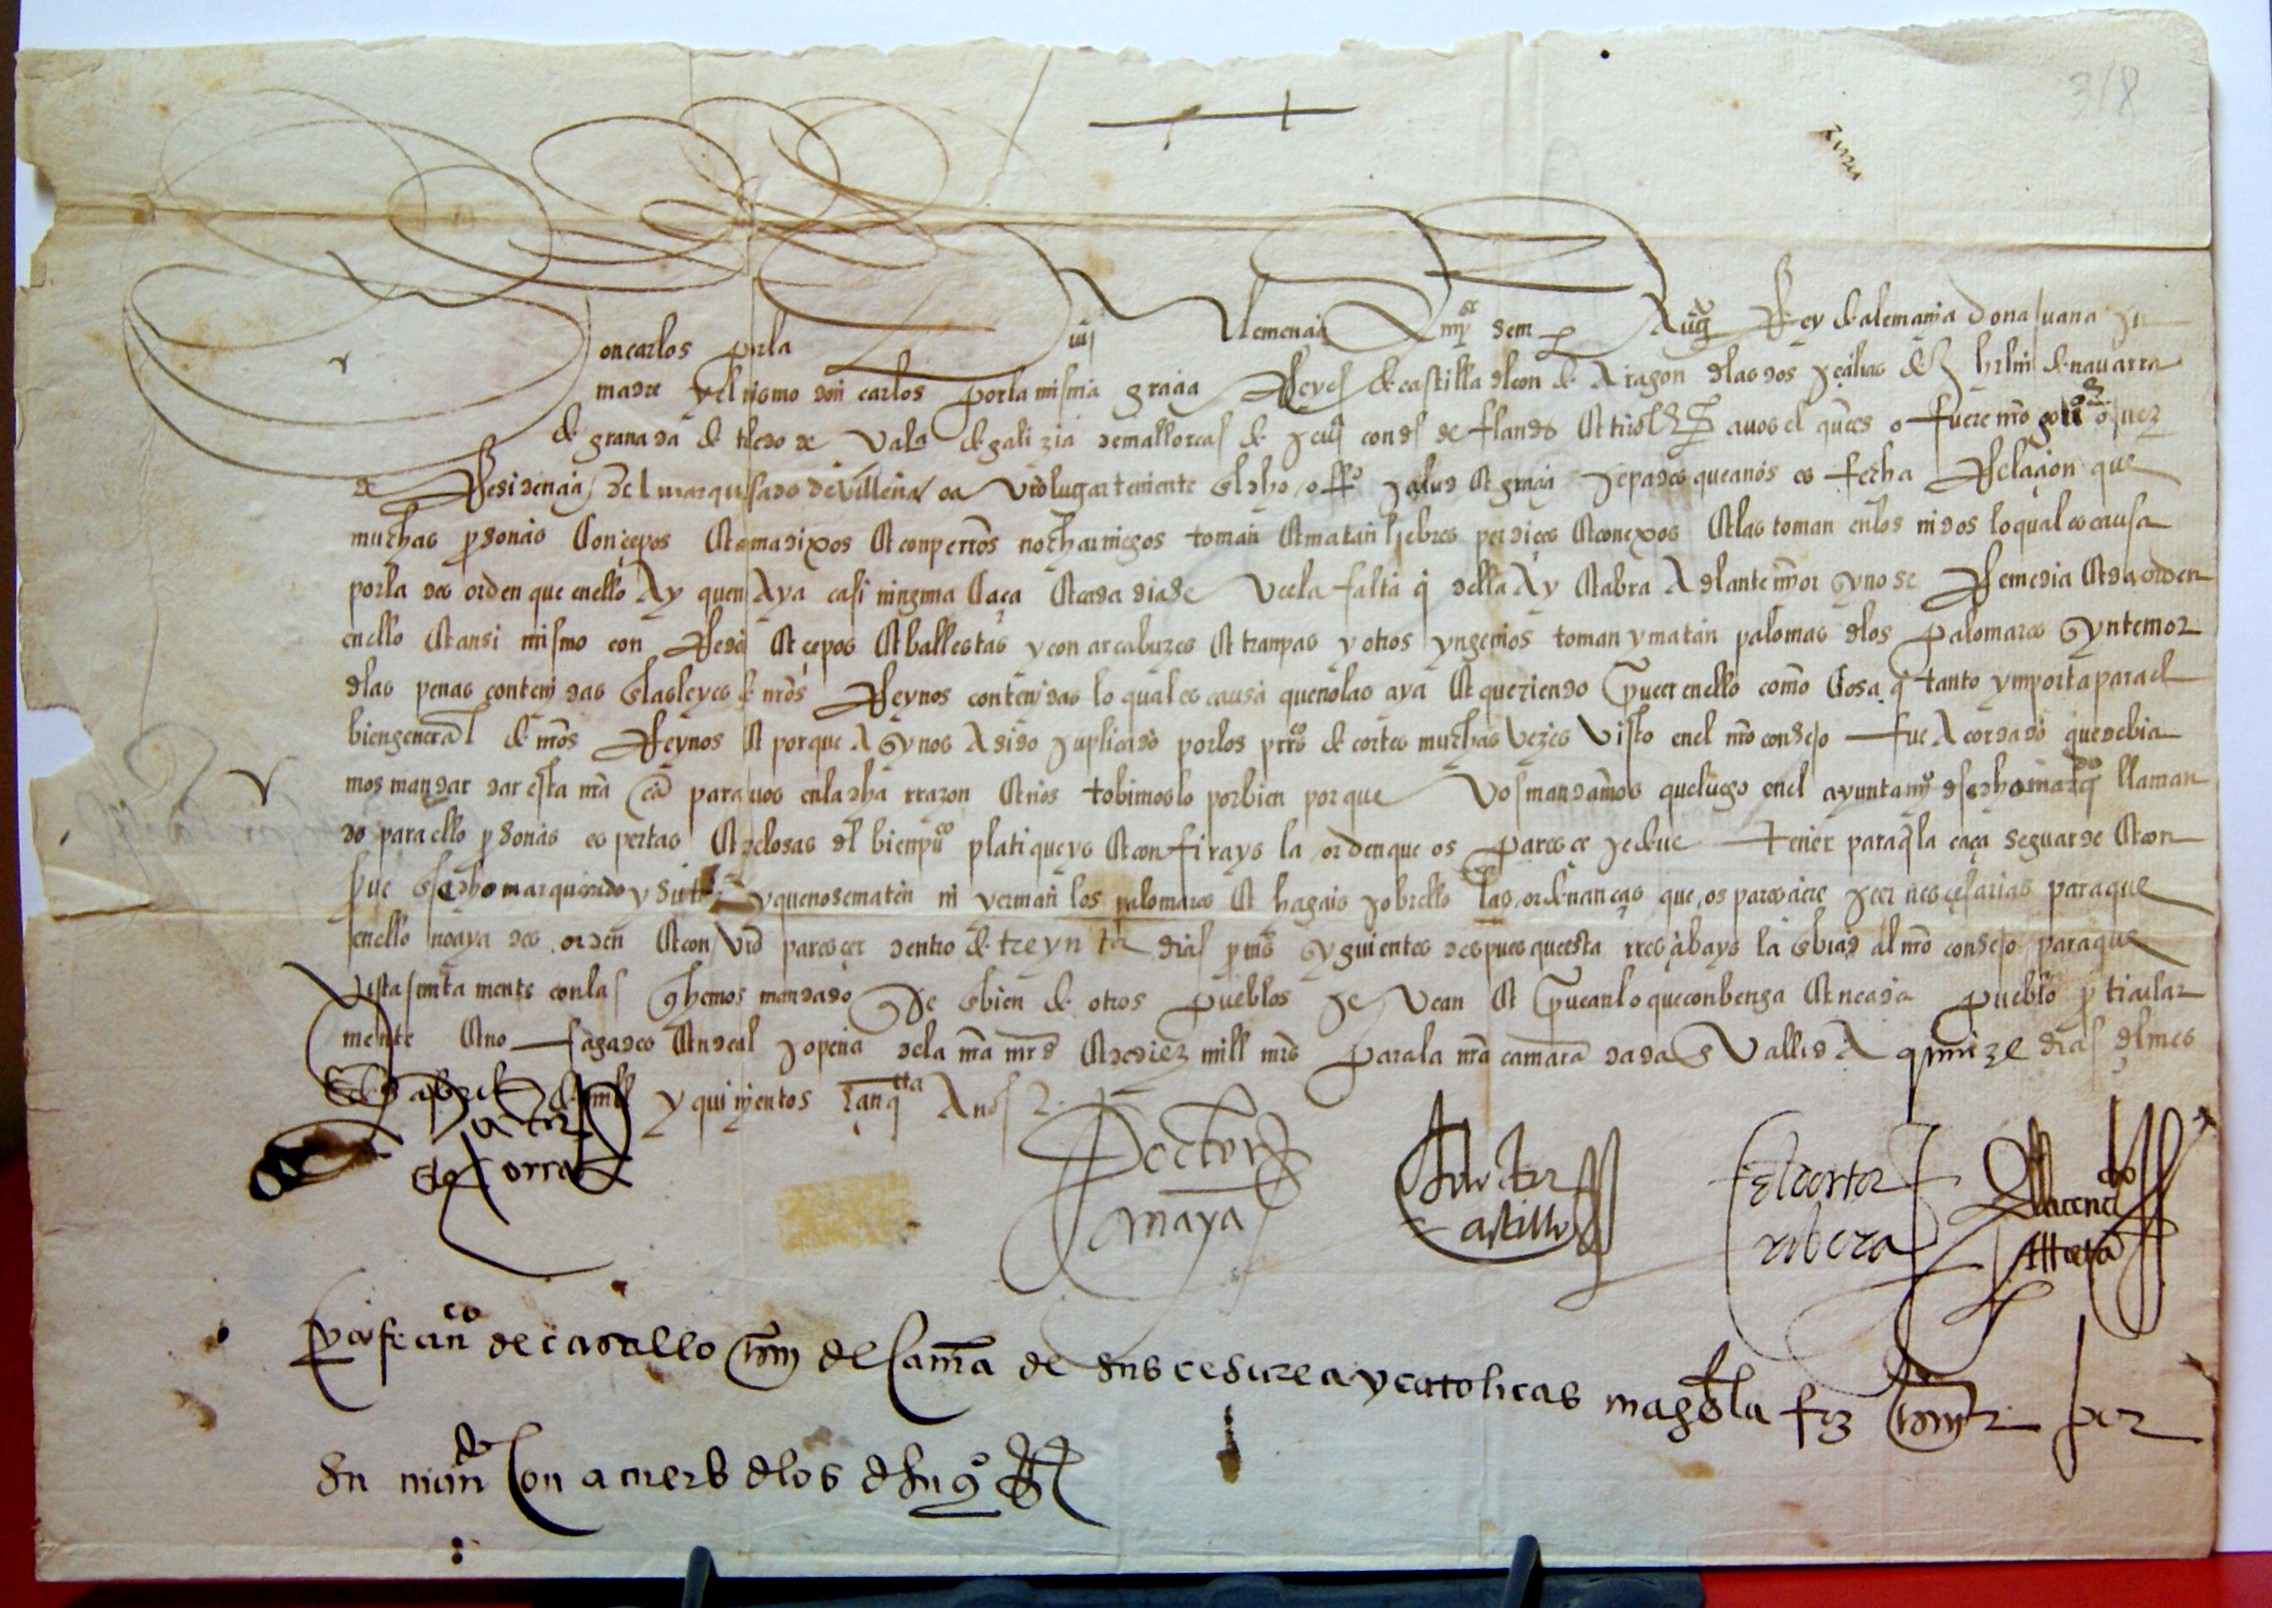 318
on carlos por la divi clemençia Emp.or semp aug.to Rey de alemania dona juana su
madre y el mismo don carlos por la misma graçia Reyes de castilla de leon de Aragon delas dos seçilias de jhrlm de navarra
de granada de toledo de valª de galizia de mallorcas de sevjª condes de flandes e tirol &ª a vos el ques o fuere nro gor o juez
de Residençia del marquesado de villena o a vro lugarteniente en el dho offº salud e graçia sepades que a nos es fecha Relaçion que
muchas psonas con çepos e armadixos e con perros nocharniegos toman e matan liebres perdizes e conexos e las toman en los nidos lo qual es causa
por la desorden que en ello Ay que no Aya casi ninguna Caça e cada dia se vee la falta q della Ay e abra Adelante mayor sy no se Remedia e da orden
en ello e ansi mismo con Redes e çepos e ballestas y con arcabuzes e tranpas y otros yngenios toman y matan palomas delos palomares syn temor
delas penas contenidas en las leyes de nros Reynos contenidas lo qual es causa que no las aya e queriendo proveer en ello como Cosa q tanto ymporta para el
bien general de nros Reynos e porque Asy nos A sido suplicado por los prores de cortes muchas vezes visto en el nro consejo fue Acordado que debia
mos mandar dar esta nra cª para vos en la dha rrazon e nos tobimoslo por bien por que vos mandamos que luego en el ayuntamyº del dho marqdo llaman
do para ello psonas espertas e zelosas del bien puco platiqueys e confirays la orden que os paresce se deve tener para q la caça se guarde e con
serve en el dho marquesado y su trra y que no se maten ni yerman los palomares e hagais sobrello las ordenanças que os paresciere ser nesçesarias para que
en ello no aya desorden e con vro paresçer dentro de treynta dias pmos syguientes despues que esta rresçibays la enbiad al nro consejo para que
vista juntamente con las q hemos mandado q se enbien de otros pueblos se vean e provean lo que conbenga e n cada pueblo pticular
mente e no fagades ende al so pena dela nra mrd e de diez mill mrs para la nra camara dada en Vallid A quinze dias del mes
de de mill y quinjentos çinqta Anos
doctor
del corral
Doctor
anaya
doctor
castillo
el doctor
ribera
El licençdo
Yo franco de castillo escrivano de Camª de sus cesarea y catolicas magdes la fiz escrevir por
su mando Con acuerdo delos de su cº